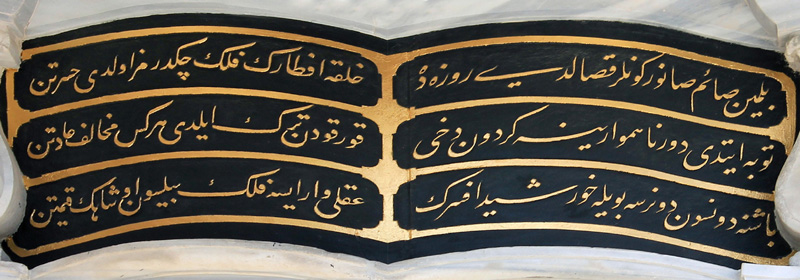 بلمین صائم صانور كونلر قصالدی روزه ده
خلقه افطارك فلك چكدرمز اولدی حسرتن
توبه ایتدی دور ناهموارینه كردون دخی
قورقودن ترك ایلدی هركس مخالف عادتن
باشنه دونسون دونرسه بویله خورشید افسرك
عقلی وار ایسه فلك بیلسون او شاهك قیمتن